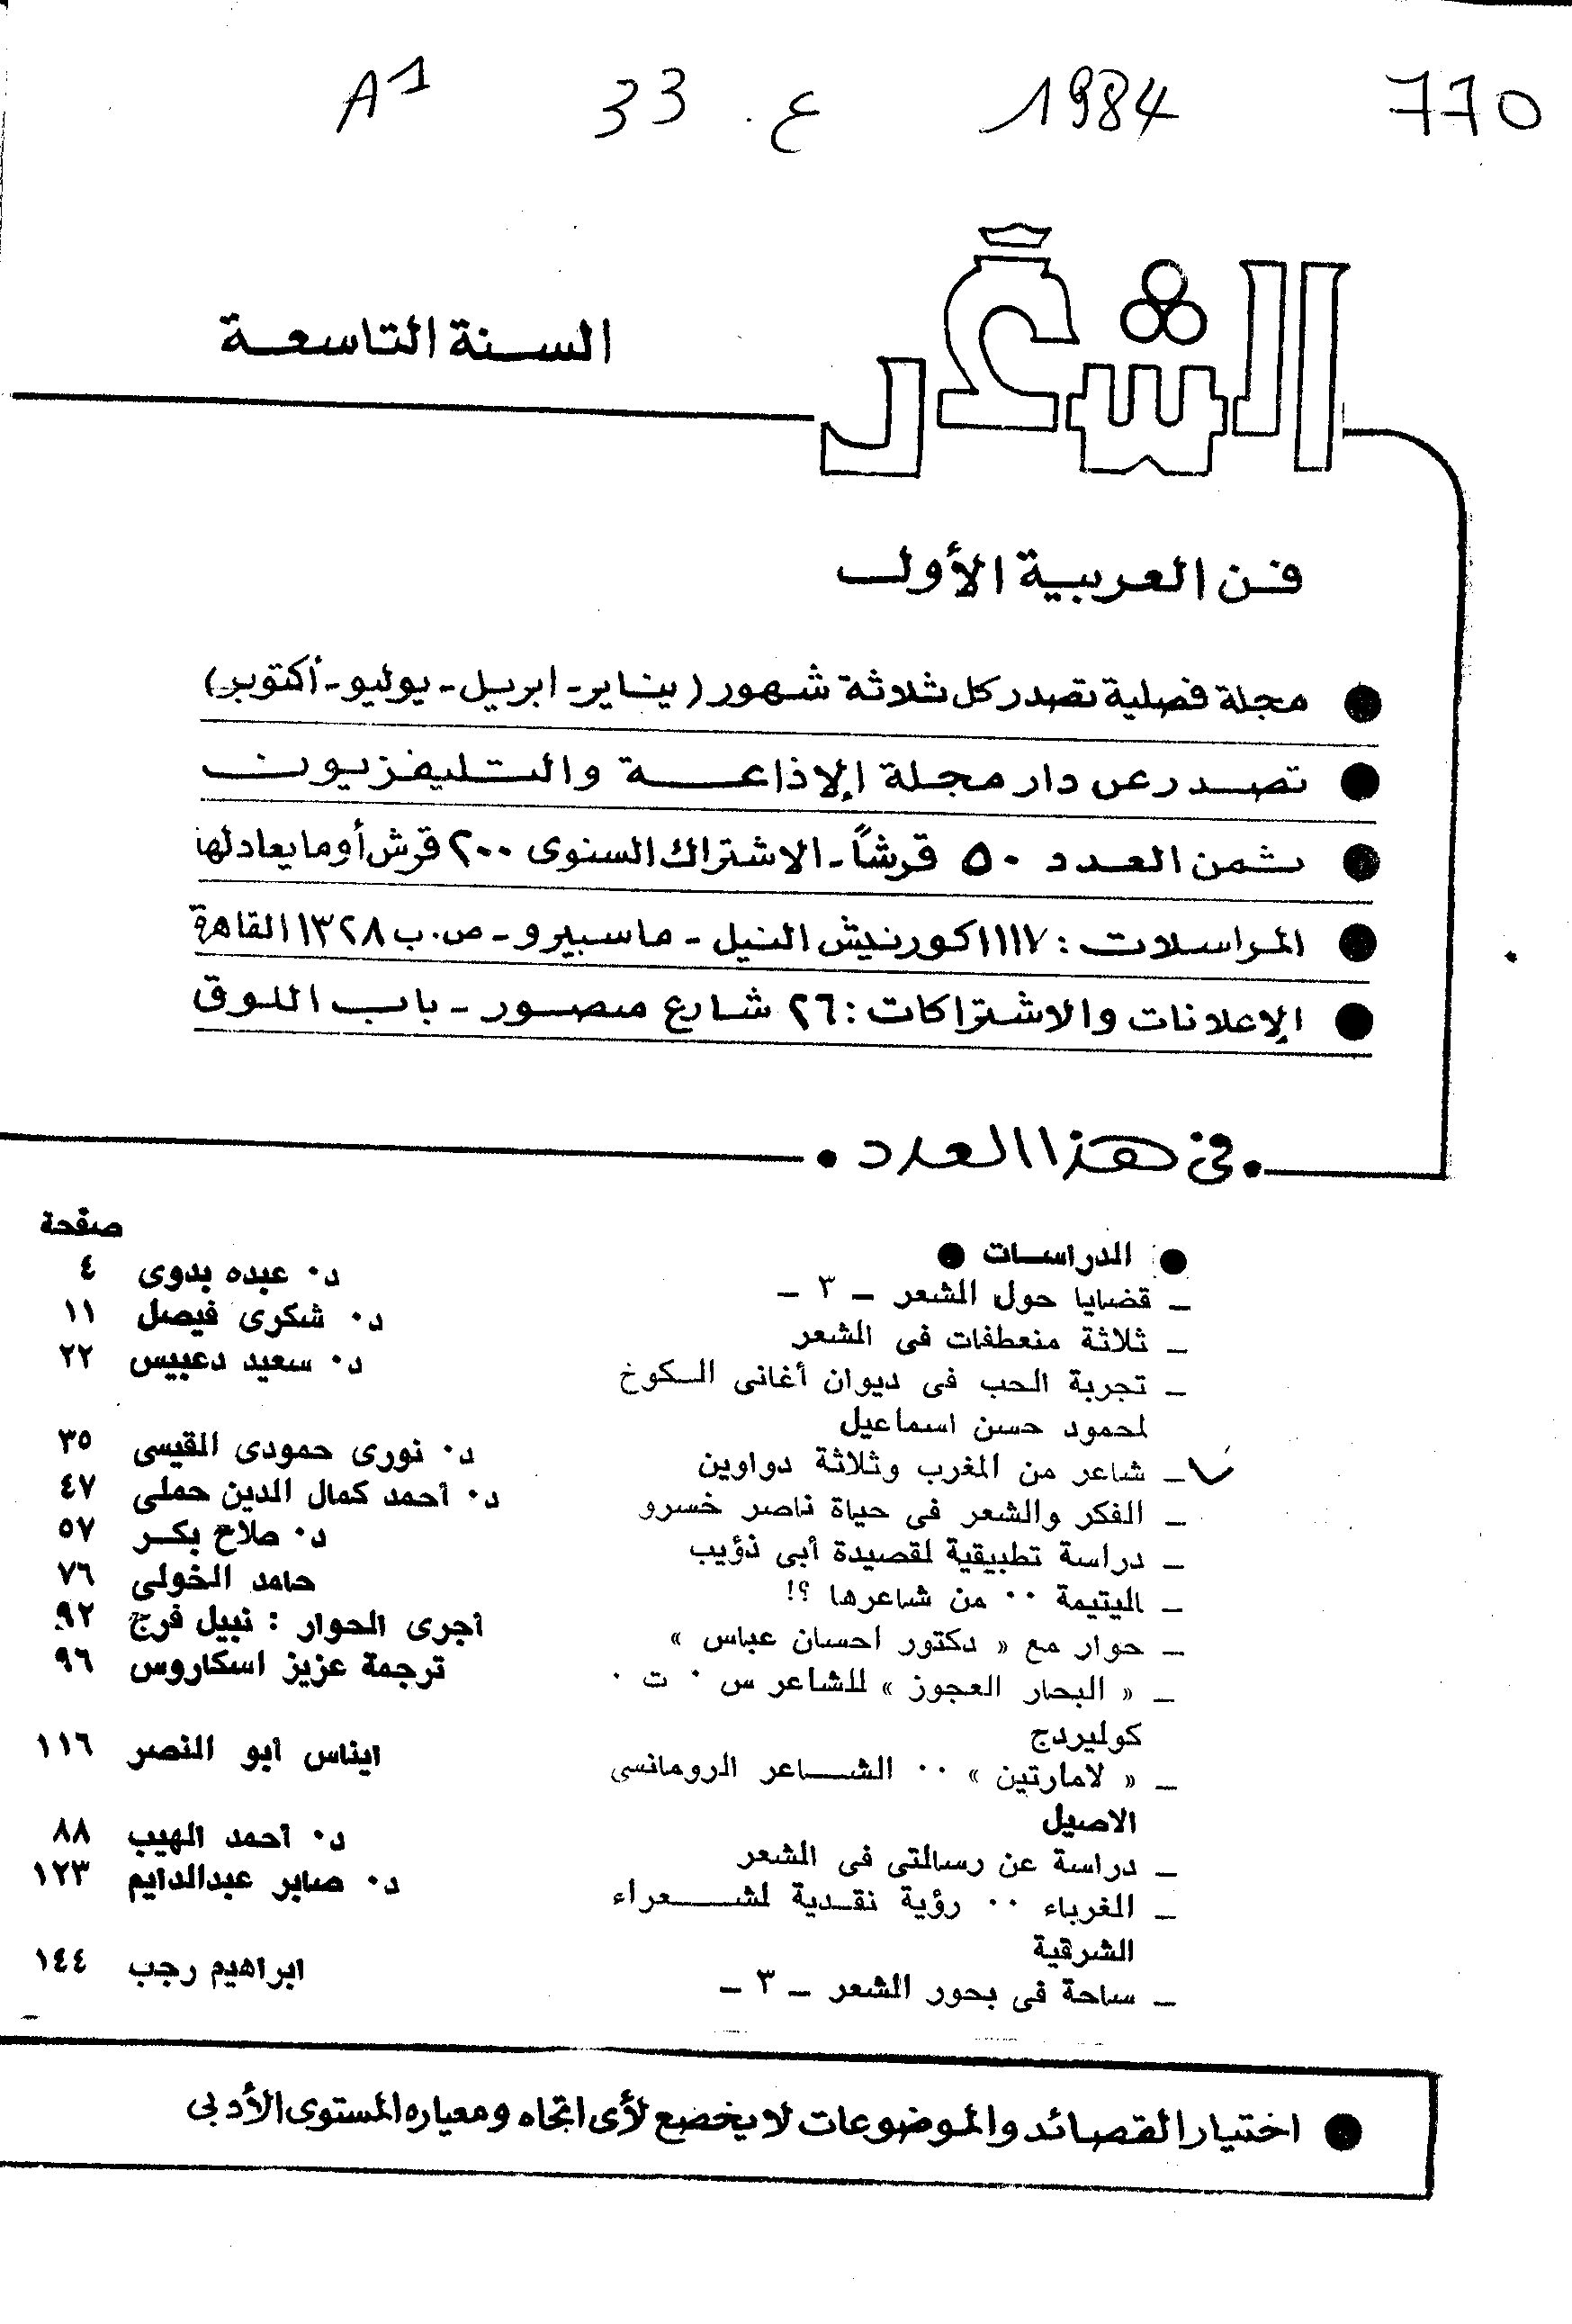 770 1984 ع. 33 A1
الشعر
السنة التاسعة
فن العربية الأولى
● مجلة فصلية تصدر كل ثلاثة شهور (يناير - ابريل - يوليو - أكتوبر)
● تصدر عن دار مجلة الإذاعة والتليفزيون
● ثمن العدد ٥٠ قرشاً - الاشتراك السنوى ٢٠٠ قرش أو ما يعادلها
● المراسلات : ١١١٧ كورنيش النيل - ماسبيرو - ص.ب ١٣٢٨ القاهرة
● الإعلانات والاشتراكات : ٢٦ شارع منصور - باب اللوق
• فى هذا العدد •
صفحة
● الدراسات ●
– قضايا حول الشعر – ٣ – د٠ عبده بدوى ٤
– ثلاثة منعطفات فى الشعر د٠ شكرى فيصل ١١
– تجربة الحب فى ديوان أغانى الكوخ د٠ سعيد دعبيس ٢٢
لمحمود حسن اسماعيل
– شاعر من المغرب وثلاثة دواوين د٠ نورى حمودى القيسى ٣٥
– الفكر والشعر فى حياة ناصر خسرو د٠ أحمد كمال الدين حملى ٤٧
– دراسة تطبيقية لقصيدة أبى ذؤيب د٠ صلاح بكر ٥٧
– اليتيمة ٠٠ من شاعرها ؟! حامد الخولى ٧٦
– حوار مع « دكتور احسان عباس » أجرى الحوار : نبيل فرج ٩٢
– « البحار العجوز » للشاعر س ٠ ت ٠ ترجمة عزيز اسكاروس ٩٦
كوليردج
– « لامارتين » ٠٠ الشاعر الرومانسى ايناس أبو النصر ١١٦
الاصيل
– دراسة عن رسالتى فى الشعر د٠ أحمد الهيب ٨٨
– الغرباء ٠٠ رؤية نقدية لشعراء د٠ صابر عبدالدايم ١٢٣
الشرقية
– ساحة فى بحور الشعر – ٣ – ابراهيم رجب ١٤٤
● اختيار القصائد والموضوعات لا يخضع لأى اتجاه ومعياره المستوى الأدبى